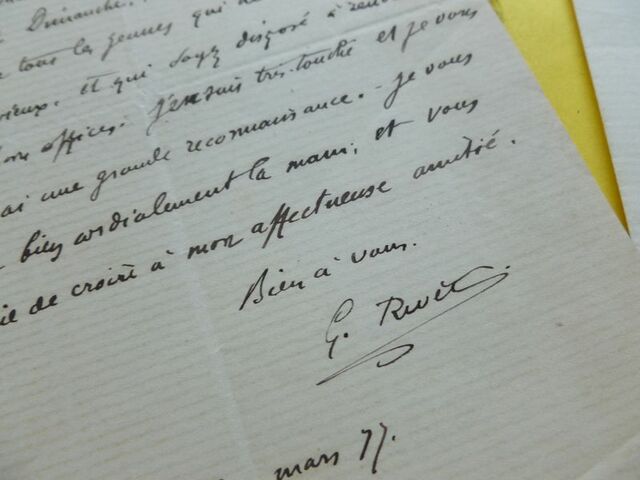 Dimanche.
tous les jeunes qui
et qui soyez disposé à
offices. j'en suis très touché et je vous
ai une grande reconnaissance. - je vous
bien cordialement la main, et vous
ie de croire à mon affectueuse amitié.
Bien à vous.
G. Rivet.
mars 77.